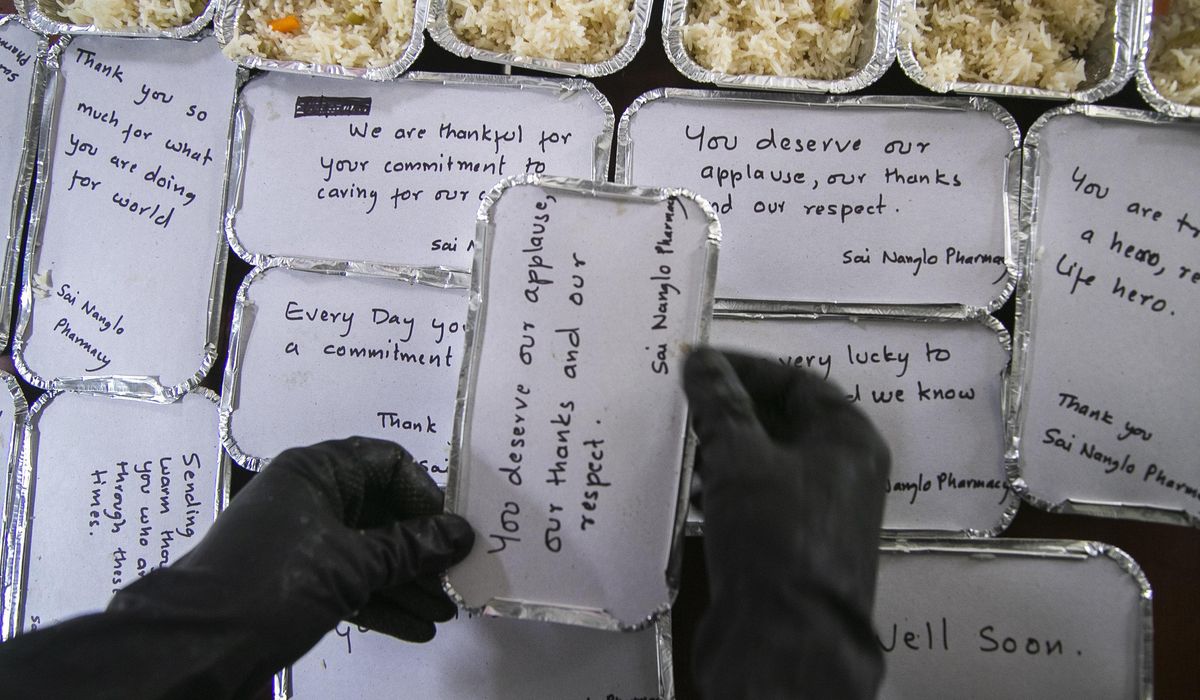 Thank
you so
much for what
you are doing
for world
Sai Nanglo
Pharmacy
We are thankful for
your commitment to
caring for our
Sai
You deserve our
applause, our thanks
our respect.
Sai Nanglo Pharmacy
You are
a hero,
life hero.
Thank you
Sai Nanglo Pharmacy
Every Day
a commitment
Thank
You deserve our applause,
our thanks and our
respect.
Sai Nanglo Pharmacy
very lucky to
we know
Nanglo Pharmacy
Sending
warm
you who
through these
times.
Well Soon.